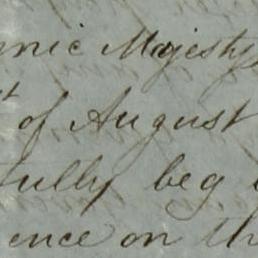 nic Majesty
t of August
fully beg
ence on th